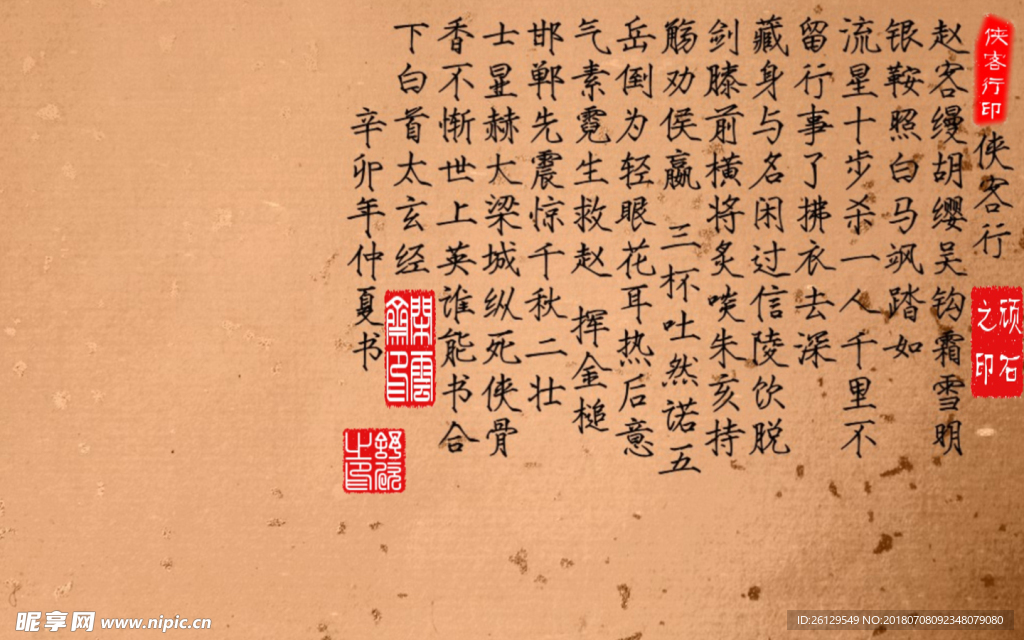 侠客行印
侠客行
顽石之印
赵客缦胡缨吴钩霜雪明
银鞍照白马飒踏如
流星十步杀一人千里不
留行事了拂衣去深
藏身与名闲过信陵饮脱
剑膝前横将炙啖朱亥持
觞劝侯嬴 三杯吐然诺五
岳倒为轻眼花耳热后意
气素霓生救赵 挥金槌
邯郸先震惊千秋二壮
士显赫大梁城纵死侠骨
香不惭世上英谁能书合
下白首太玄经
辛卯年仲夏书
昵享网 www.nipic.cn
ID:26129549 NO:20180708092348079080